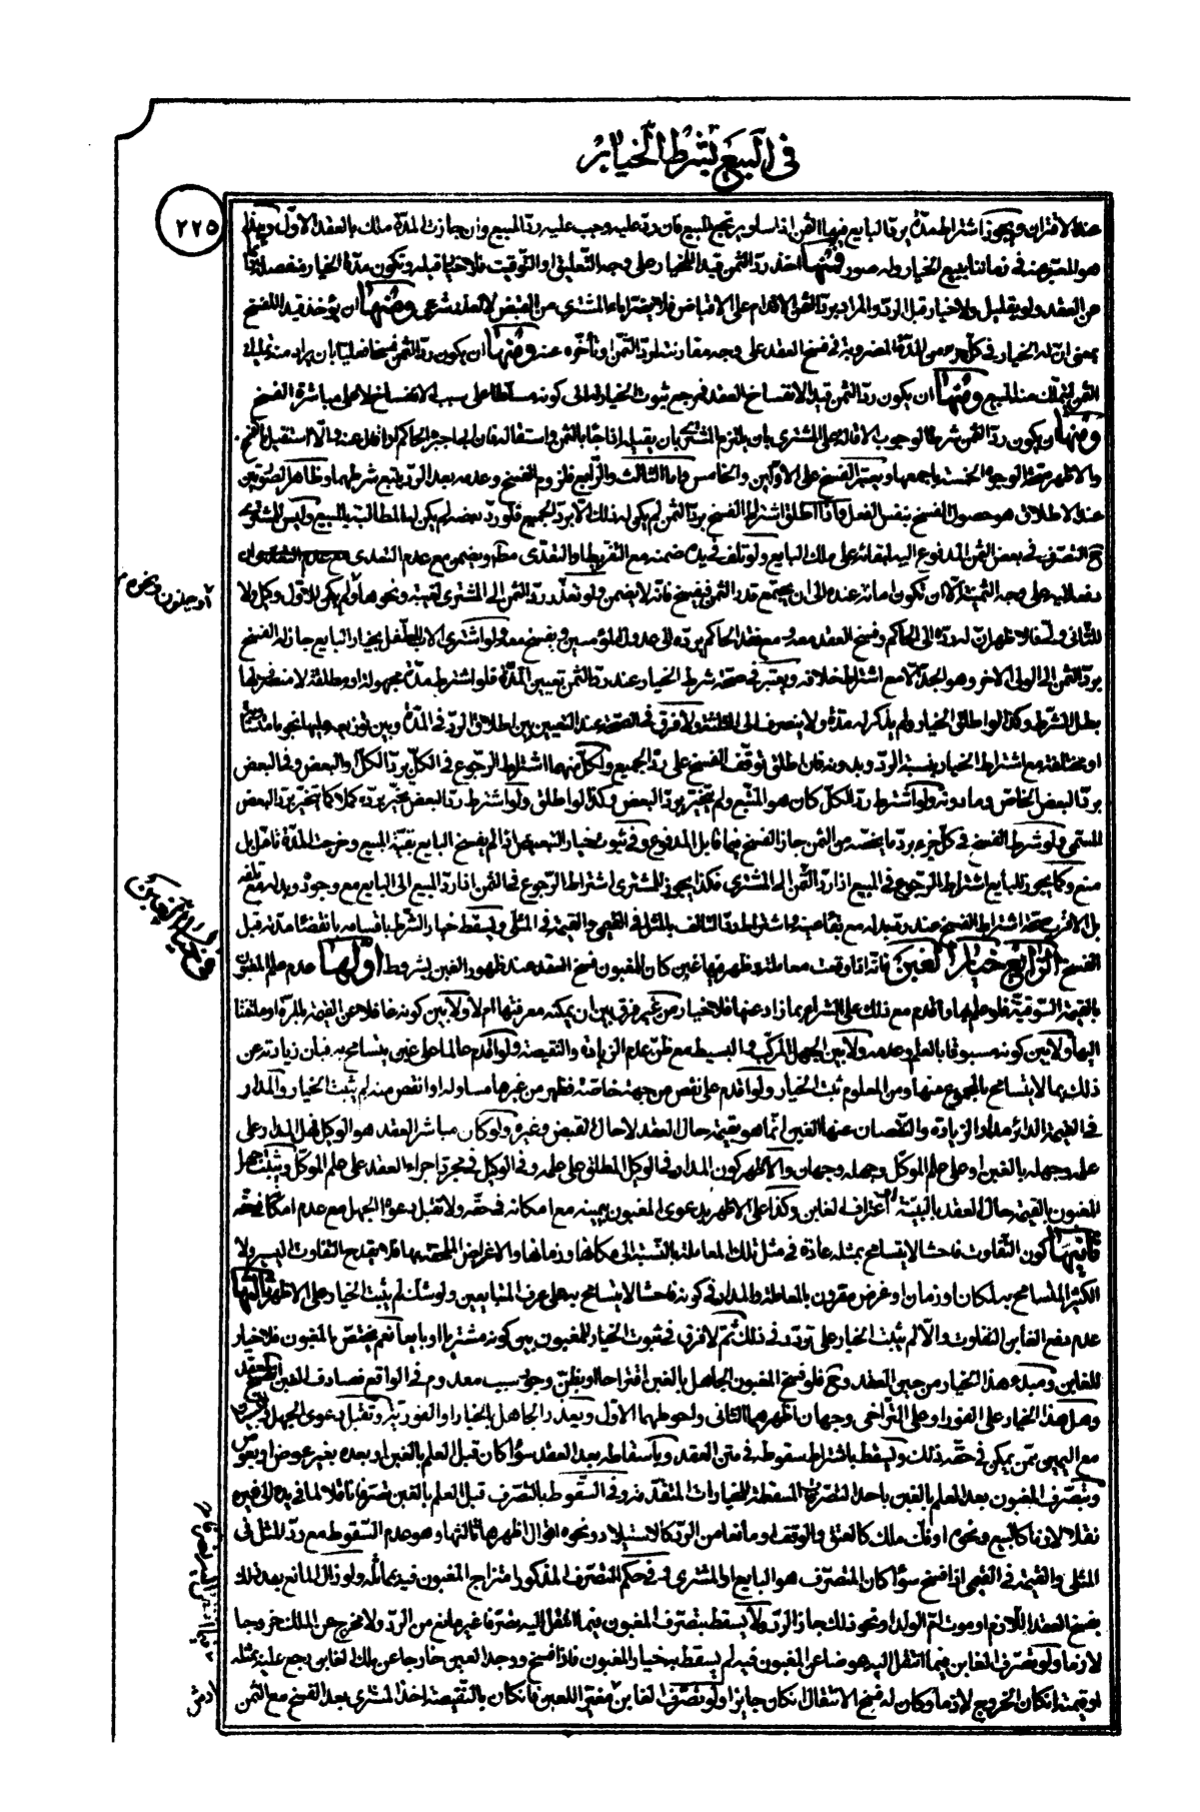 في البيع بشرط الخيار
٢٢٥
عند الاقتران ويجوز اشتراط مدة يرد البايع فيها الثمن اذا ويرتجع المبيع فان رد عليه وجب عليه رد المبيع وان جازت المدة ملك بالعقد الاول وهذا
هو المعبر عنه في زماننا ببيع الخيار وله صور فمنها اخذ رد الثمن قيدا للخيار على وجه التعليق او التوقيت فلا خيار قبله وتكون مدة الخيار منفصلة دائما
عن العقد ولو بقليل ولا خيار قبل الرد والمراد برد الثمن الاقدام على الاقباض فلا يضر اباء المشتري من القبض لا لعذر شرعي ومنها ان يؤخذ قيدا للفسخ
بمعنى ان له الخيار في كل جزء من المدة المضروبة في فسخ العقد على وجه مقارنته لرد الثمن او تأخره عنه ومنها ان يكون رد الثمن فسخا فعليا بان يراد منه تمليك
الثمن ليتملك منه المبيع ومنها ان يكون رد الثمن قيدا لانفساخ العقد فمرجع ثبوت الخيار له الى كونه مسلطا على سبب الانفساخ لا على مباشرة الفسخ
ومنها ان يكون رد الثمن شرطا لوجوب الاقالة على المشتري بان يلتزم المشتري بان يقيله اذا جاء بالثمن واستقاله فان ابى اجبره الحاكم او اقال عنه والا استقل بالفسخ
والاظهر صحة الوجوه الخمسة باجمعها ويعتبر الفسخ على الاولين والخامس واما الثالث والرابع فلزوم الفسخ وعدمه بعد الرد يتبع شرطهما وظاهر الصورتين
عند الاطلاق هو حصول الفسخ بنفس الفعل واذا اطلق اشتراط الفسخ برد الثمن لم يكن له ذلك الا برد الجميع فلو رد بعضه لم يكن له المطالبة بالمبيع وليس للمشتري
ح التصرف في بعض الثمن المدفوع اليه لبقائه على ملك البايع ولو تلف في يده ضمنه مع التفريط او التعدي مطلقا ويضمن مع عدم التعدي ان
دفعه اليه على وجه الثمنية الا ان تكون امانة عنده الى ان يجتمع قدر الثمن فيفسخ فانه لا يضمن ولو تعذر رد الثمن الى المشتري لغيبة ونحوها ولم يكن للاول وكيل ولا
او جنون ونحوه م
للثاني ولي فالاظهر ان له رده الى الحاكم وفسخ العقد معه ومع فقد الحاكم يرده الى عدول المؤمنين ويفسخ معه ولو اشترى الاب للطفل بخيار البايع جاز له الفسخ
برد الثمن الى الولي الاخر وهو الجد الا مع اشتراط خلافه ويعتبر في صحة شرط الخيار عند رد الثمن تعيين المدة فلو اشترط مدة مجهولة او مطلقة لا منصرف لها
بطل الشرط وكذا لو اطلق الخيار ولم يذكر له مدة ولا ينصرف الى الثلثة ولا فرق في الصحة عند التعيين بين اطلاق الرد في المدة وبين توزيعه عليها نجوما متساوية
او مختلفة مع اشتراط الخيار بنسبة الرد وبدونه فان اطلق توقف الفسخ على رد الجميع ولكل منهما اشتراط الرجوع في الكل برد الكل او البعض وفي البعض
برد البعض الخاص وما دونه ولو اشترط رد الكل كان هو المتبع ولم يتخير برد البعض وكذا لو اطلق ولو اشترط رد البعض تخير برده كلا كما يتخير برد البعض
المسمى ولو شرط الفسخ في كل جزء برد ما يخصه من الثمن جاز الفسخ فيما قابل المدفوع وفي ثبوت خيار التبعيض اذا لم يفسخ البايع بقية المبيع وخرجت المدة تأمل بل
منع وكما يجوز للبايع اشتراط الرجوع في المبيع اذا رد الثمن الى المشتري فكذا يجوز للمشتري اشتراط الرجوع في الثمن اذا رد المبيع الى البايع مع وجوده وبدله مع تلفه
بل الاقرب صحة اشتراط الفسخ عند رد بدله مع بقاء عينه واشتراط رد التالف بالمثل في القيمي والقيمة في المثلي ويسقط خيار الشرط باقسامه بانقضاء مدته قبل
في خيار الغبن
الفسخ الرابع خيار الغبن فانه اذا وقعت معاملة وظهر فيها غبن كان للمغبون فسخ العقد عند ظهور الغبن بشروط اولها عدم علم المغبون
بالقيمة السوقية فلو علمها واقدم مع ذلك على الشراء بما زاد عنها فلا خيار من غير فرق بين ان يمكنه معرفتها ام لا ولا بين كونه غافلا عن القيمة بالمرة او ملتفتا
اليها ولا بين كونه مسبوقا بالعلم وعدمه ولا بين الجهل المركب والبسيط مع ظن عدم الزيادة والنقيصة ولو اقدم عالما على غبن يتسامح به فبان زيادته عن
ذلك بما لا يتسامح بالمجموع منها ومن المعلوم ثبت الخيار ولو اقدم على نقص من جهة خاصة فظهر من غيرها مساو له او انقص منه لم يثبت الخيار والمدار
في القيمة الدائر مدار الزيادة والنقصان عنها الغبن انما هو بقيمة حال العقد لا حال القبض وغيره ولو كان مباشر العقد هو الوكيل فهل المدار على
علمه وجهله بالغبن او على علم الموكل وجهله وجهان والاظهر كون المدار في الوكيل المطلق على علمه وفي الوكيل في مجرد اجراء العقد على علم الموكل ويثبت جهل
المغبون بالقيمة حال العقد بالبينة او اعتراف الغابن وكذا على الاظهر بدعوى المغبون بيمينه مع امكانه في حقه ولا تقبل دعواه الجهل مع عدم امكانه في حقه
ثانيها كون التفاوت فاحشا لا يتسامح بمثله عادة في مثل تلك المعاملة بالنسبة الى مكانها وزمانها والاغراض الملحقة بها فلا يقدح التفاوت اليسير ولا
الكثير المتسامح به لمكان او زمان او غرض مقرون بالمعاملة والمدار في كونه فاحشا لا يتسامح به على عرف المتبايعين ولو شك لم يثبت الخيار على الاظهر ثالثها
عدم دفع الغابن التفاوت والا لم يثبت الخيار على تردد في ذلك ثم لا فرق في ثبوت الخيار للمغبون بين كونه مشتريا او بايعا نعم يختص بالمغبون فلا خيار
للغابن ومبدء هذا الخيار من حين العقد وح فلو فسخ المغبون الجاهل بالغبن اقتراحا او بظن وجود سبب معدوم في الواقع فصادف الغبن انفسخ العقد
وهل هذا الخيار على الفور او على التراخي وجهان اظهرهما الثاني واحوطهما الاول ويعذر الجاهل بالخيار او الفورية وتقبل دعوى الجهل
مع اليمين ممن يمكن في حقه ذلك ويسقط باشتراط سقوطه في متن العقد وباسقاطه بعد العقد سواء كان قبل العلم بالغبن او بعده بغير عوض او بعوض
وبتصرف المغبون بعد العلم بالغبن باحد التصرفات المسقطة للخيارات المتقدمة وفي السقوط بالتصرف قبل العلم بالغبن تصرفا ناقلا لما في يده الى غيره
نقلا لازما كالبيع ونحوه او فك ملك كالعتق والوقف او مانعا من الرد كالاستيلاد ونحوه اقوال اظهرها ثالثها وهو عدم السقوط مع رد المثل في
المثلي والقيمة في القيمي اذا فسخ سواء كان المتصرف هو البايع او المشتري وفي حكم التصرف المذكور امتزاج المغبون فيه بماثله ولو زال المانع بعد ذلك
بفسخ العقد اللازم او موت ام الولد او نحو ذلك جاز الرد ولا يسقط بتصرف المغبون فيما انتقل اليه تصرفا غير مانع من الرد ولا مخرج عن الملك خروجا
لازما ولو تصرف الغابن فيما انتقل اليه عوضا عن المغبون فيه لم يسقط به خيار المغبون فاذا فسخ ووجد العين خارجا عن ملك الغابن رجع عليه بمثله
او قيمته ان كان الخروج لازما وكان له فسخ الانتقال ان كان جايزا ولو تصرف الغابن مغيرا للعين فان كان بالنقيصة اخذ المشتري بعد الفسخ مع الثمن